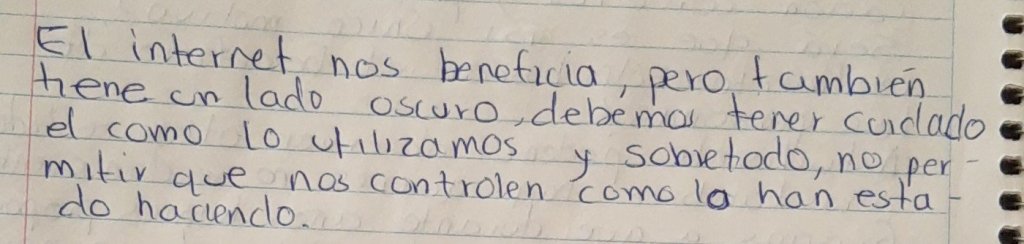 El internet nos beneficia, pero también
tiene un lado oscuro, debemos tener cuidado
el como lo utilizamos y sobretodo, no per-
mitir que nos controlen como lo han esta-
do haciendo.